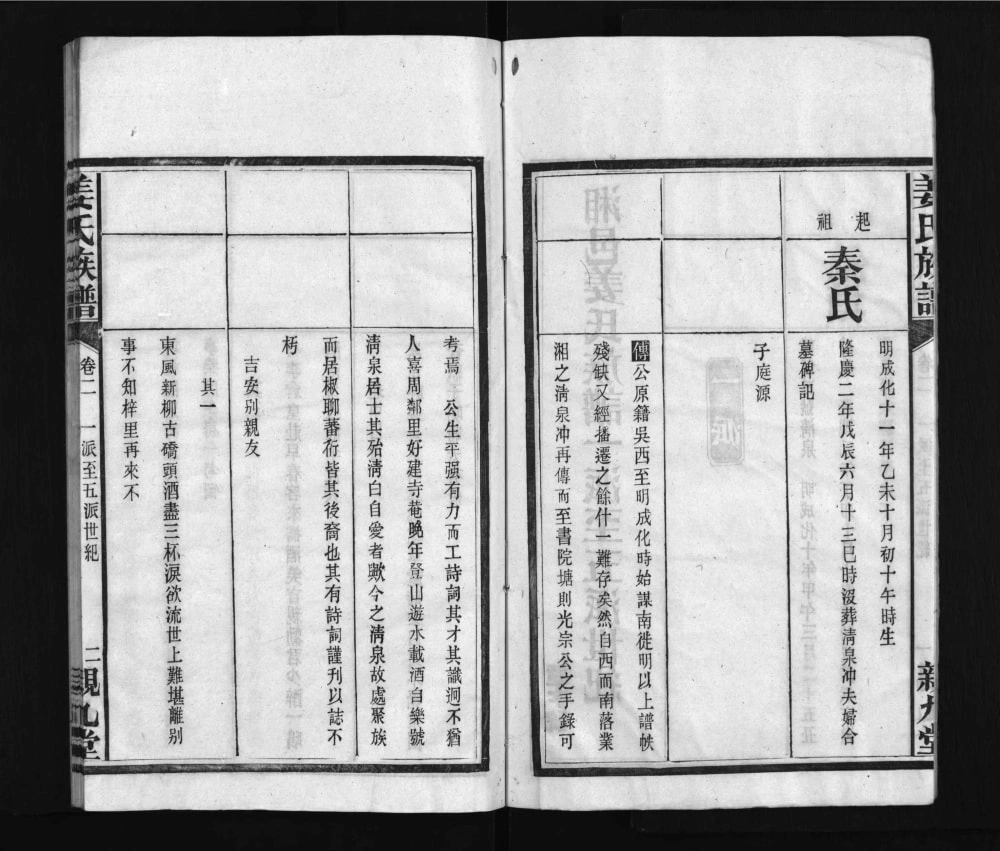 姜氏族譜
親九堂
起
祖
秦氏
明成化十一年乙未十月初十午時生
隆慶二年戊辰六月十三巳時沒葬淸泉冲夫婦合
墓碑記
子庭源
傳公原籍吳西至明成化時始謀南徙明以上譜帙
殘缺又經播遷之餘什一難存矣然自西而南落業
湘之淸泉冲再傳而至書院塘則光宗公之手錄可
考焉 公生平强有力而工詩詞其才其識迥不猶
人喜周鄰里好建寺菴晚年登山遊水載酒自樂號
淸泉居士其殆淸白自愛者歟今之淸泉故處聚族
而居椒聊蕃衍皆其後裔也其有詩詞謹刊以誌不
朽
吉安别親友
其一
東風新柳古磽頭酒盡三杯淚欲流世上難堪離别
事不知梓里再來不
姜氏族譜
卷二 一派至五派世紀
二
親九堂